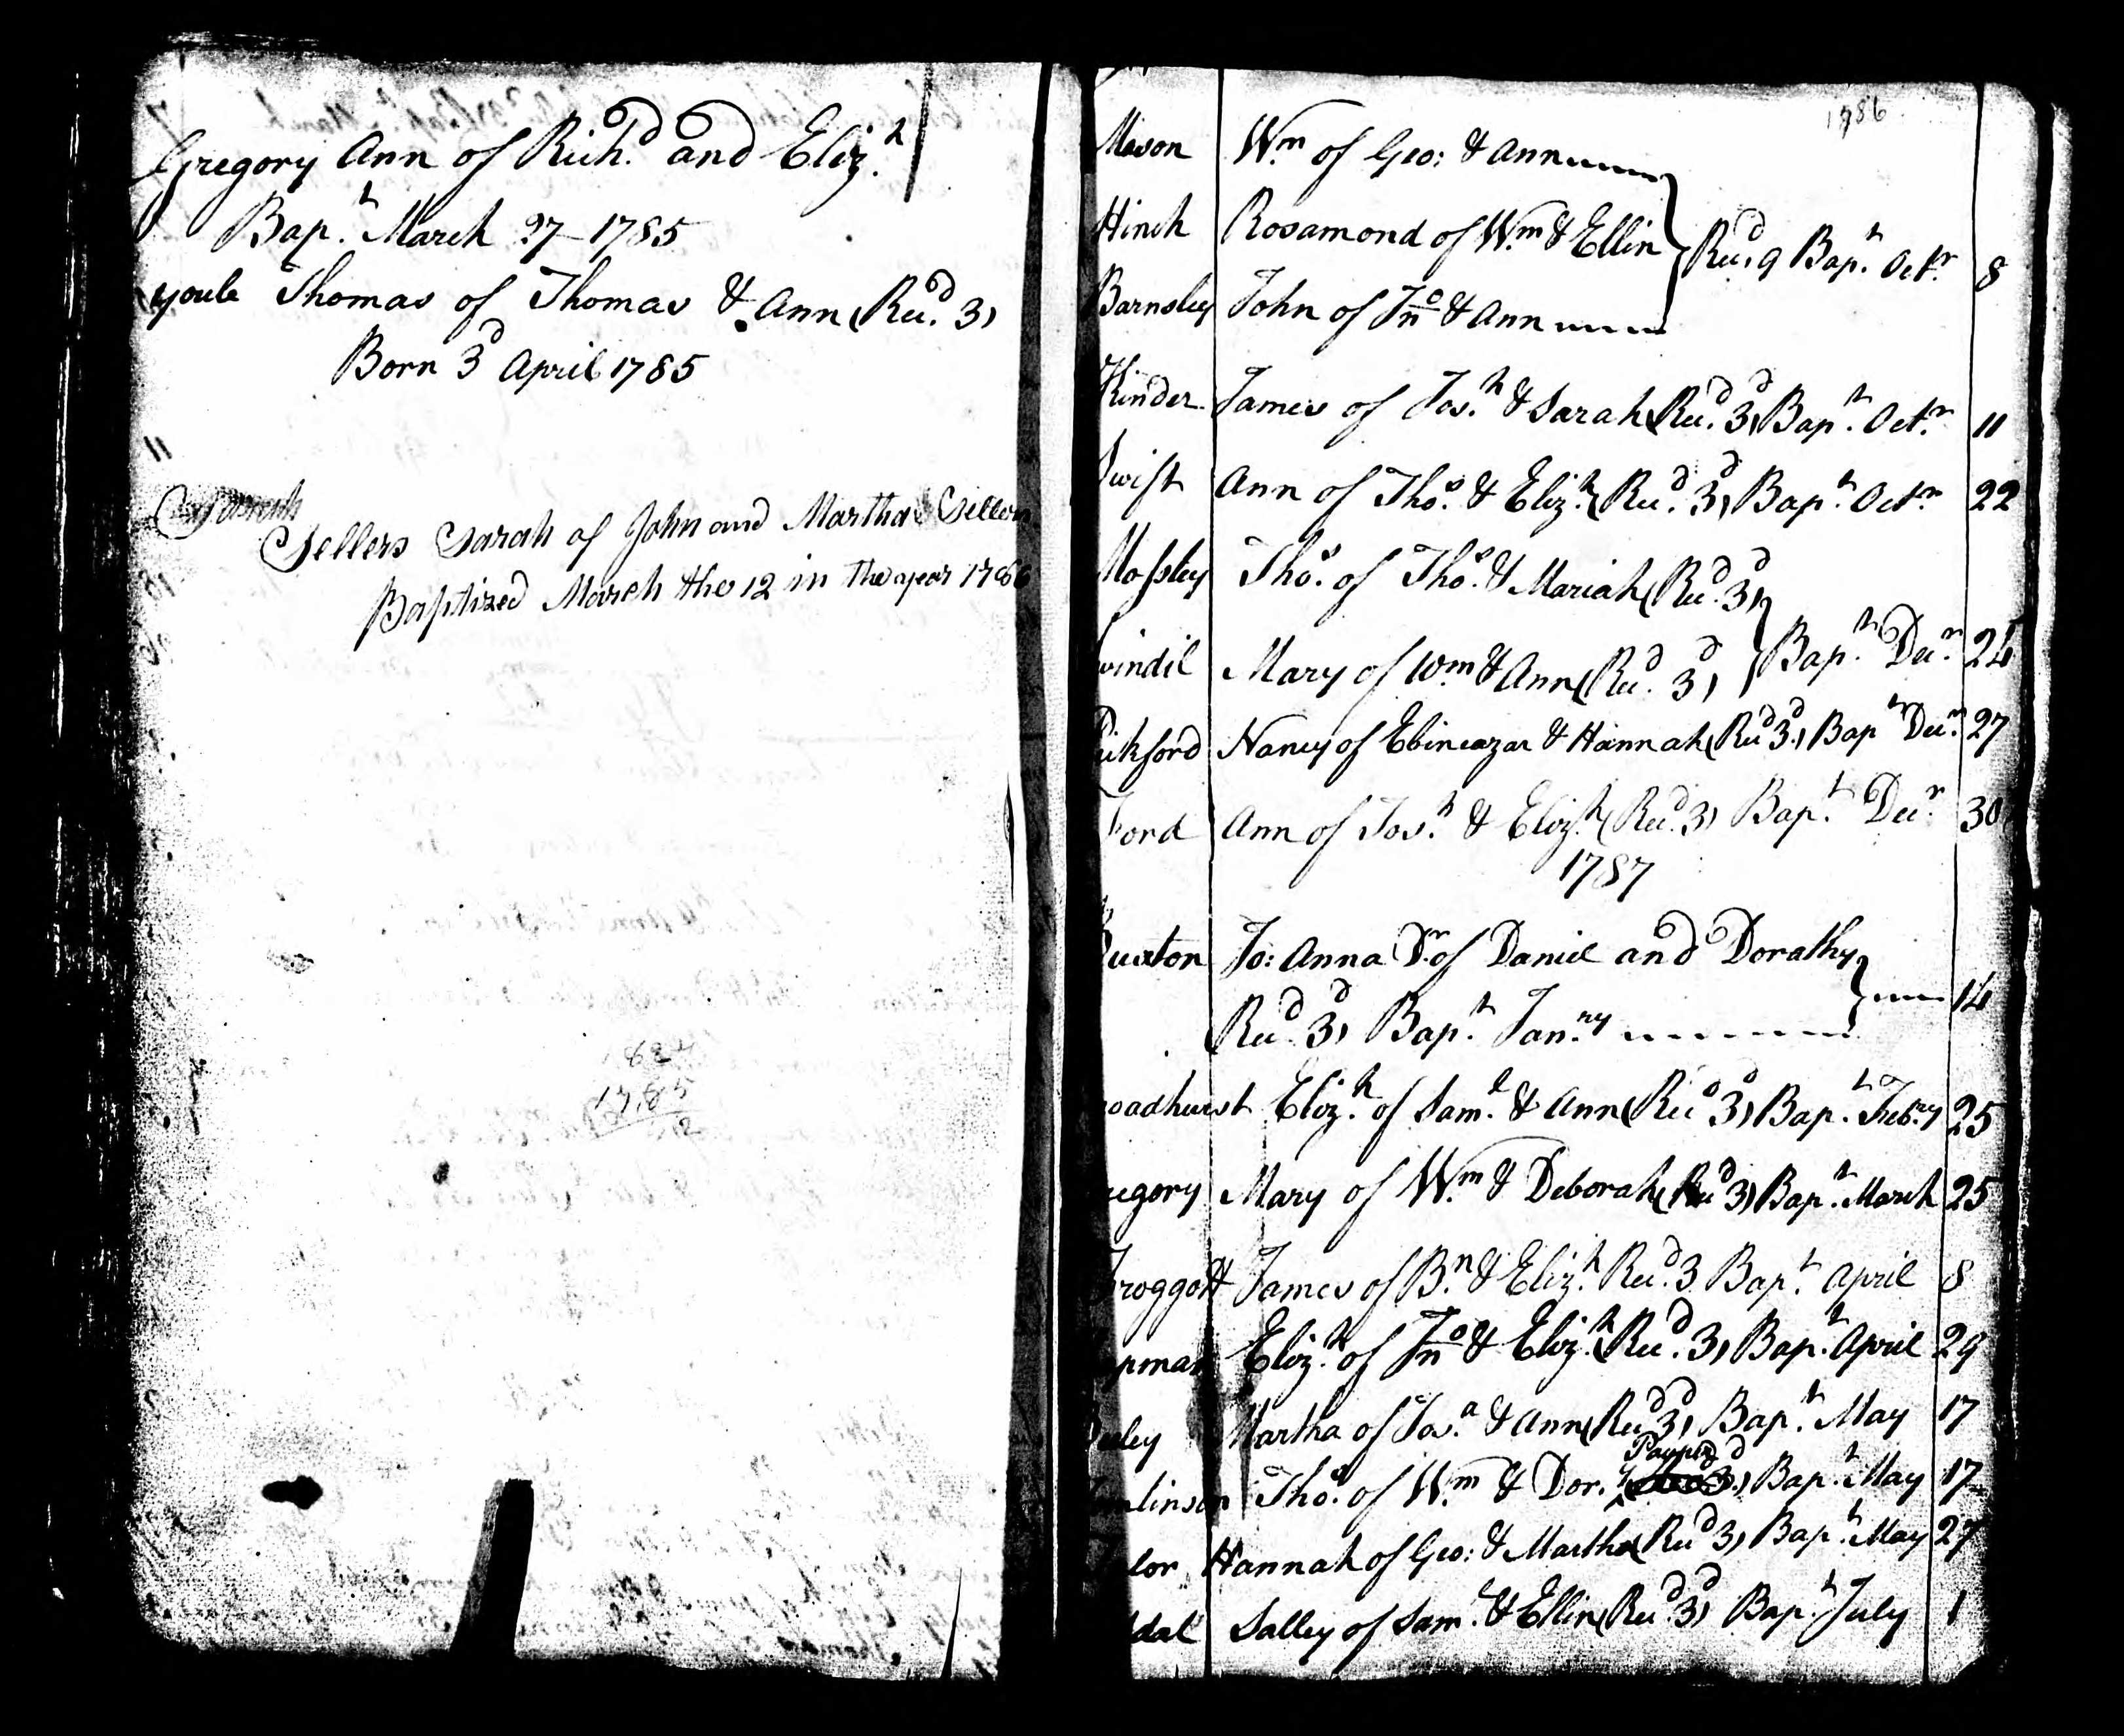 Gregory Ann of Rich.d and Eliz.h
Bap.t March 27 1785
youle Thomas of Thomas & Ann (Rec.d 3)
Born 3d April 1785
Sellers Sarah of John and Martha Sellers
Baptized March the 12 in the year 1786
1785
12
1786
Mason W.m of Geo: & Ann
Hinch Rosamond of W.m & Ellin Rec.d 9 Bap.t Oct.r 8
Barnsley John of Jno & Ann
Kinder James of Jos.h & Sarah (Rec.d 3d) Bap.t Oct.r 11
Swift Ann of Tho.s & Eliz.h (Rec.d 3d) Bap.t Oct.r 22
Mossley Tho.s of Tho.s & Mariah (Rec.d 3d)
windil Mary of Wm & Ann (Rec.d 3d) Bap.t Dec.r 24
ickford Nancy of Ebineazar & Hannah (Rec.d 3d) Bap.t Dec.r 27
Ford Ann of Jos.h & Eliz.h (Rec.d 3) Bap.t Dec.r 30
1787
Buxton Jo: Anna D.r of Daniel and Dorathy
Rec.d 3d) Bap.t Jan.ry 14
roadhurst Eliz.h of Sam.l & Ann (Rec.d 3d) Bap.t Feb.ry 25
regory Mary of W.m & Deborah (Rec.d 3) Bap.t March 25
Froggott James of B.n & Eliz.h Rec.d 3 Bap.t April 8
apman Eliz.h of Jno & Eliz.h (Rec.d 3) Bap.t April 29
ley Martha of Jos.a & Ann (Rec.d 3d) Bap.t May 17
Pauper
mlinson Tho.s of W.m & Dor.y Bap.t May 17
lor Hannah of Geo: & Martha (Rec.d 3) Bap.t May 27
dal Salley of Sam.l & Ellin (Rec.d 3d) Bap.t July 1